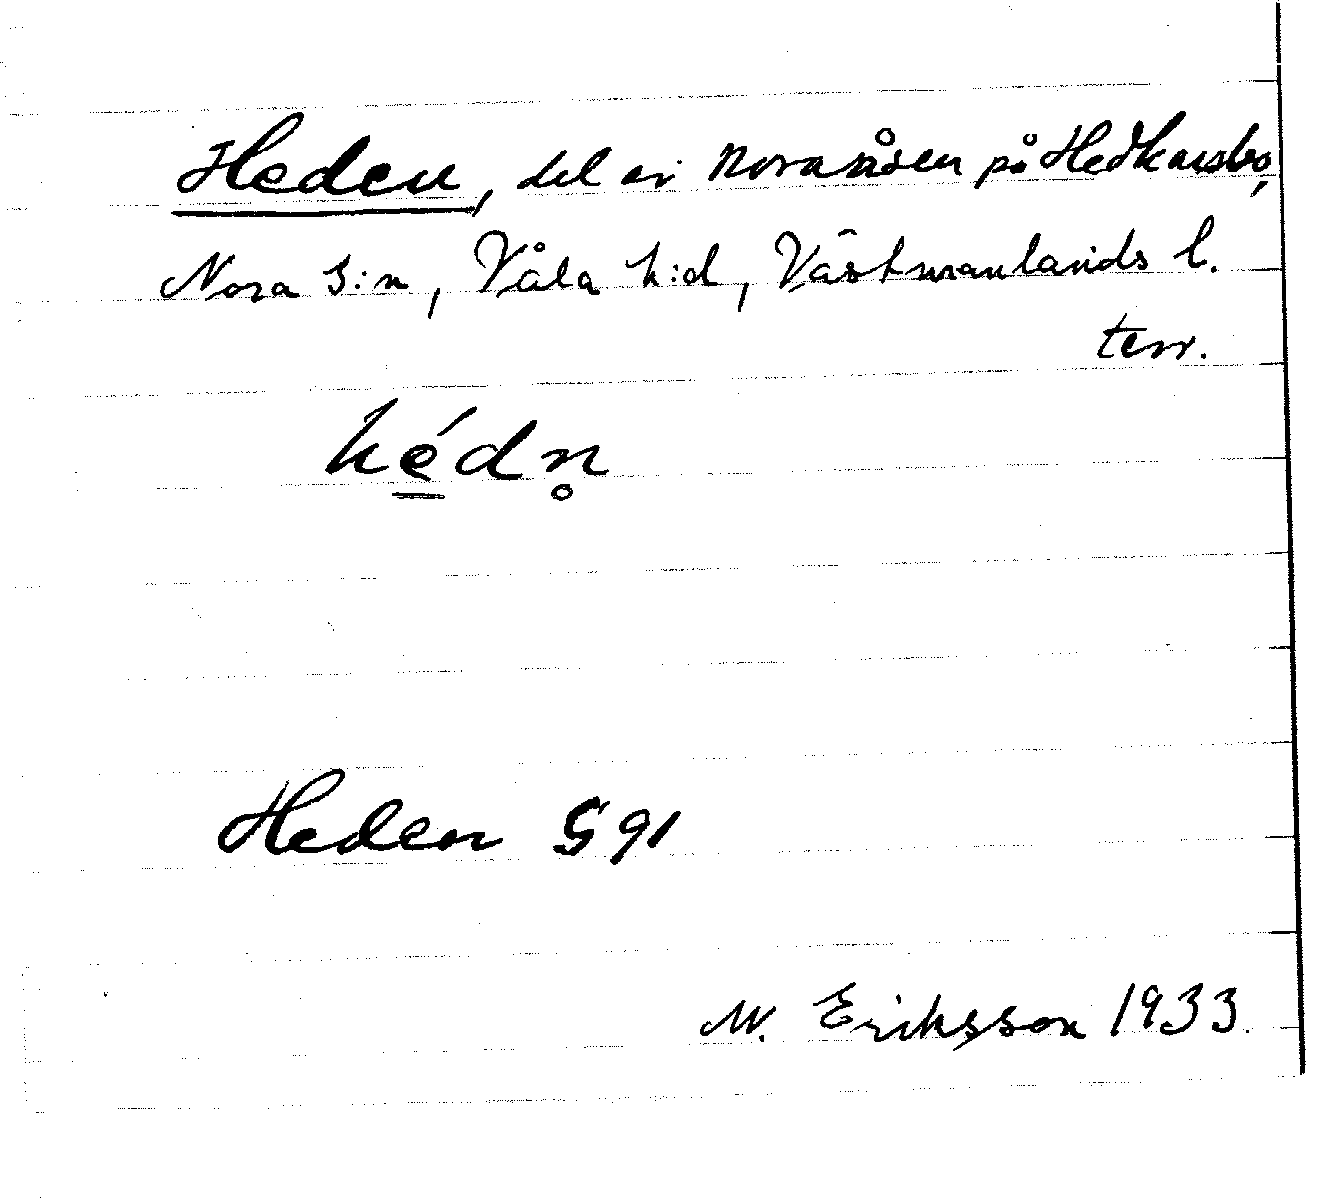 Heden, del av Noraåsen på Hedkarsbo,
Nora s:n, Våla h:d, Västmanlands l.
terr.
hédn̥
Heden G 91
M. Eriksson 1933.